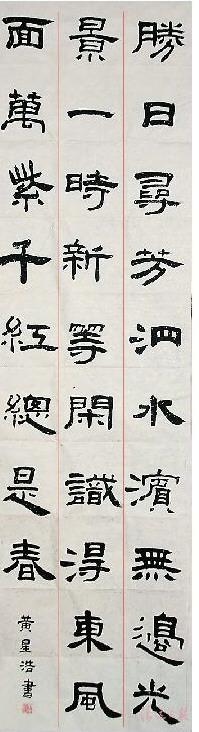 勝日尋芳泗水濱無邊光
景一時新等閑識得東風
面萬紫千紅總是春
黃星浩書